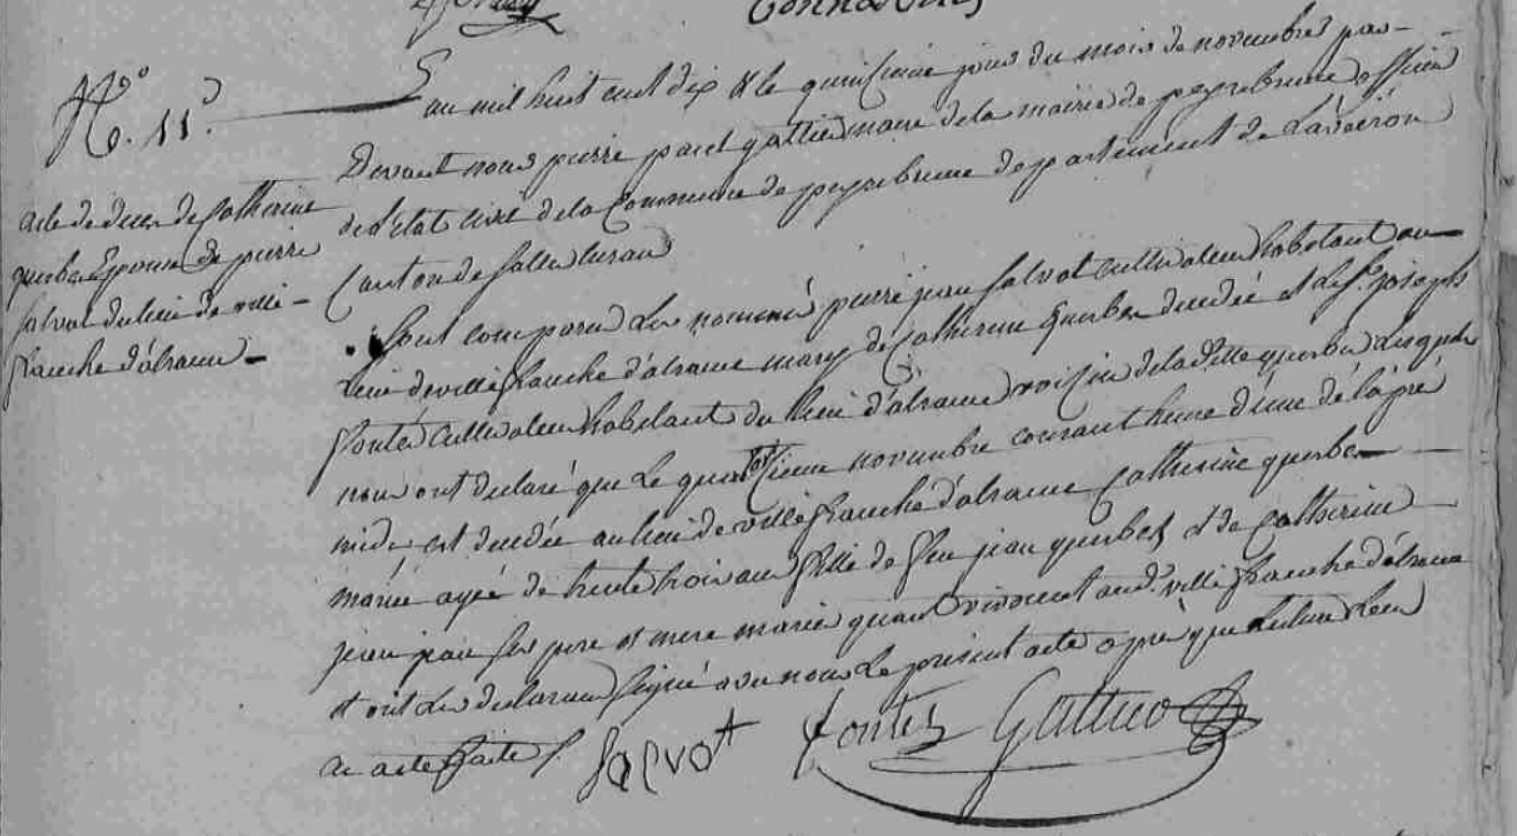 N°. 11.
acte de deces de Catherine
querbes Epouse de pierre
salvat du lieu de ville-
franche d'
L'an mil huit cent dix & le quinsieme jour du mois de novembre par-
Devant nous pierre paul gattieu maire de la mairie de peyrebrune officier
de L'Etat civil de la Commune de peyrebrune departement de L'aveiron
Canton de Salles Curan
Sont comparu Les nommés pierre jean salvat Cultivateur habitant au
Lieu de villefranche d' mary de Catherine querbes decedée et Le Sr. joseph
fontes Cultivateur habitant du lieu d' voisin de la ditte querbes Lesquels
nous ont declaré que Le quatorsieme novembre courant heure d'une de l'apré
midi est decedée au lieu de villefranche d' Catherine querbes
mariée agée de trente trois ans fille de feu jean querbes et de Catherine
jean jean ses pere et mere mariés quand vivoient aud. villefranche d'
et ont Les declarans signé avec nous Le present acte aprè que Lecture Leur
en acte faite /.
Salvat fontes Gattieu